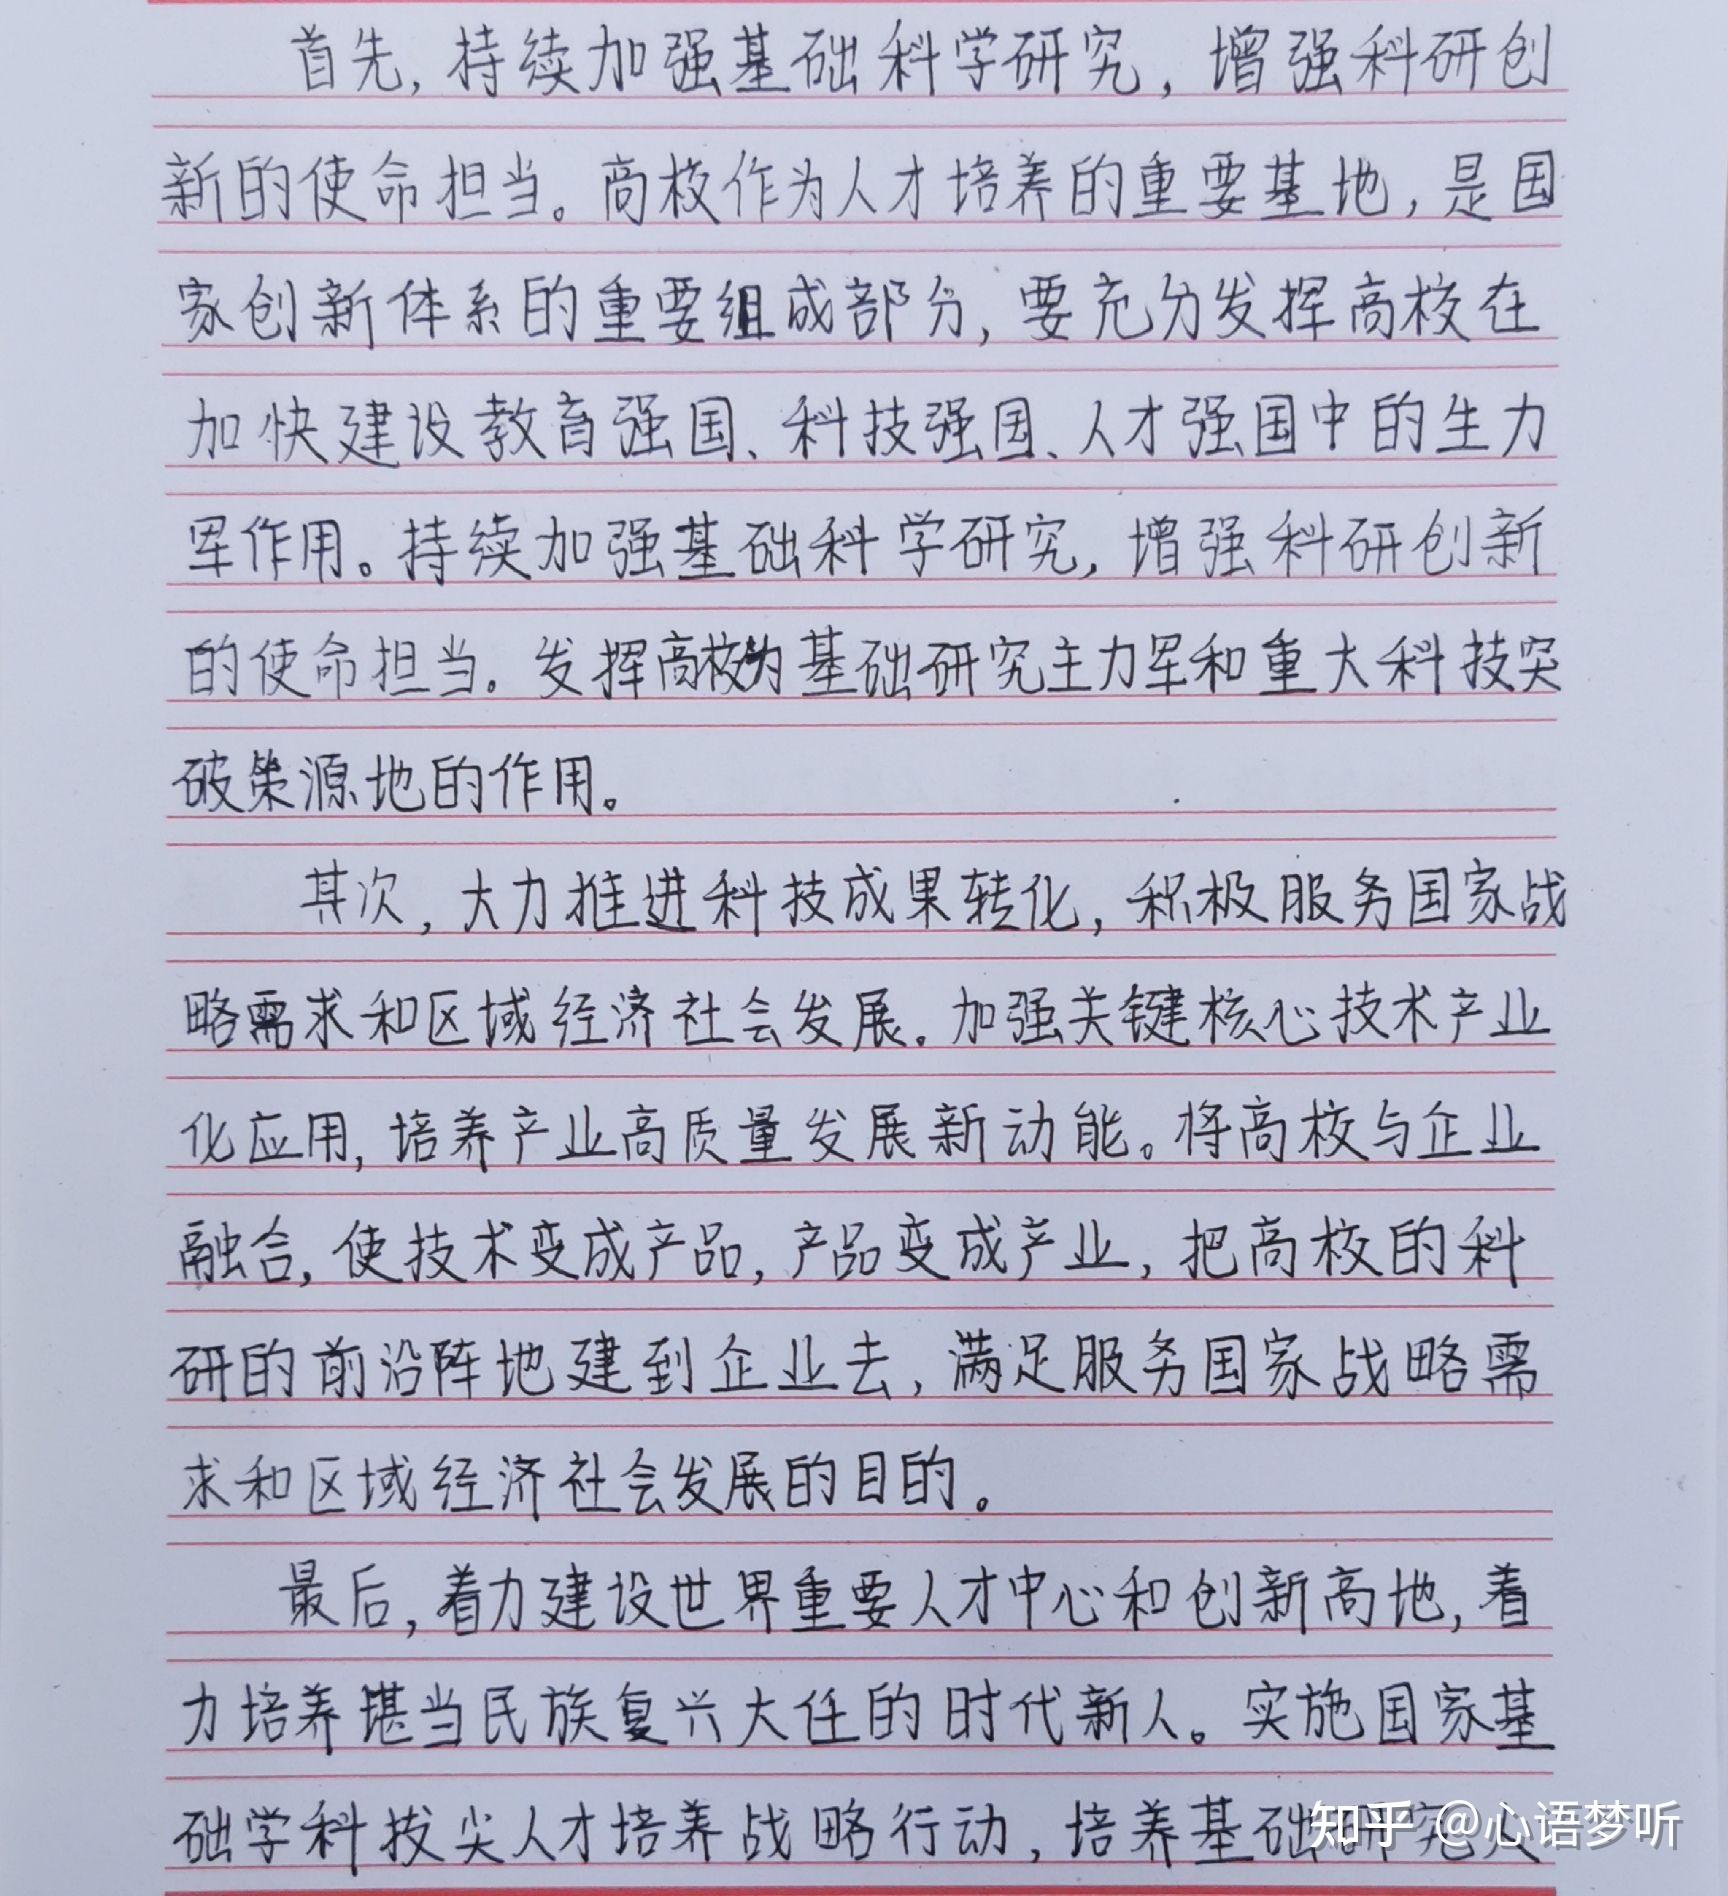 首先，持续加强基础科学研究，增强科研创
新的使命担当。高校作为人才培养的重要基地，是国
家创新体系的重要组成部分，要充分发挥高校在
加快建设教育强国、科技强国、人才强国中的生力
军作用。持续加强基础科学研究，增强科研创新
的使命担当。发挥高校为基础研究主力军和重大科技突
破策源地的作用。
其次，大力推进科技成果转化，积极服务国家战
略需求和区域经济社会发展。加强关键核心技术产业
化应用，培养产业高质量发展新动能。将高校与企业
融合，使技术变成产品，产品变成产业，把高校的科
研的前沿阵地建到企业去，满足服务国家战略需
求和区域经济社会发展的目的。
最后，着力建设世界重要人才中心和创新高地，着
力培养堪当民族复兴大任的时代新人。实施国家基
础学科拔尖人才培养战略行动，培养基础研究人
知乎 @心语梦听